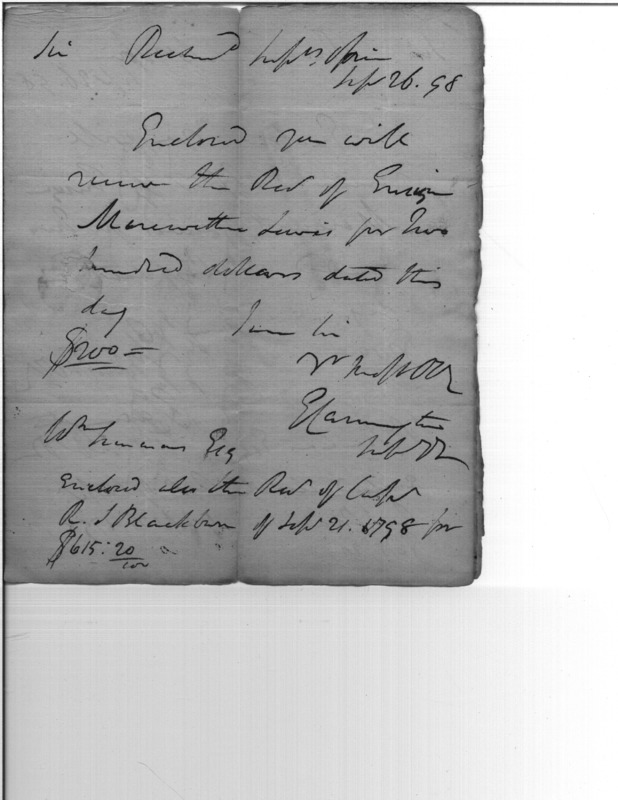 Sir Richmd Suprs Office
Sept 26. 98
Enclosed you will
receive the Rect of Ensign
Merewether Lewis for Two
hundred dollars dated this
day I am Sir
$200=
Yr
E Carrington
Wm Simmons Esq
Enclosed also the Rect of Capt
R. S Blackburn of Sept 21. 1798 for
$615:20/100